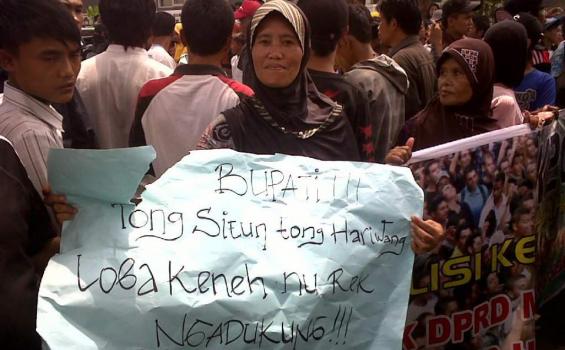 BUPATI!!!
Tong Situn tong Hariwang
Loba Keneh nu Rek
NGADUKUNG!!!
LISI KE
K DPRD M